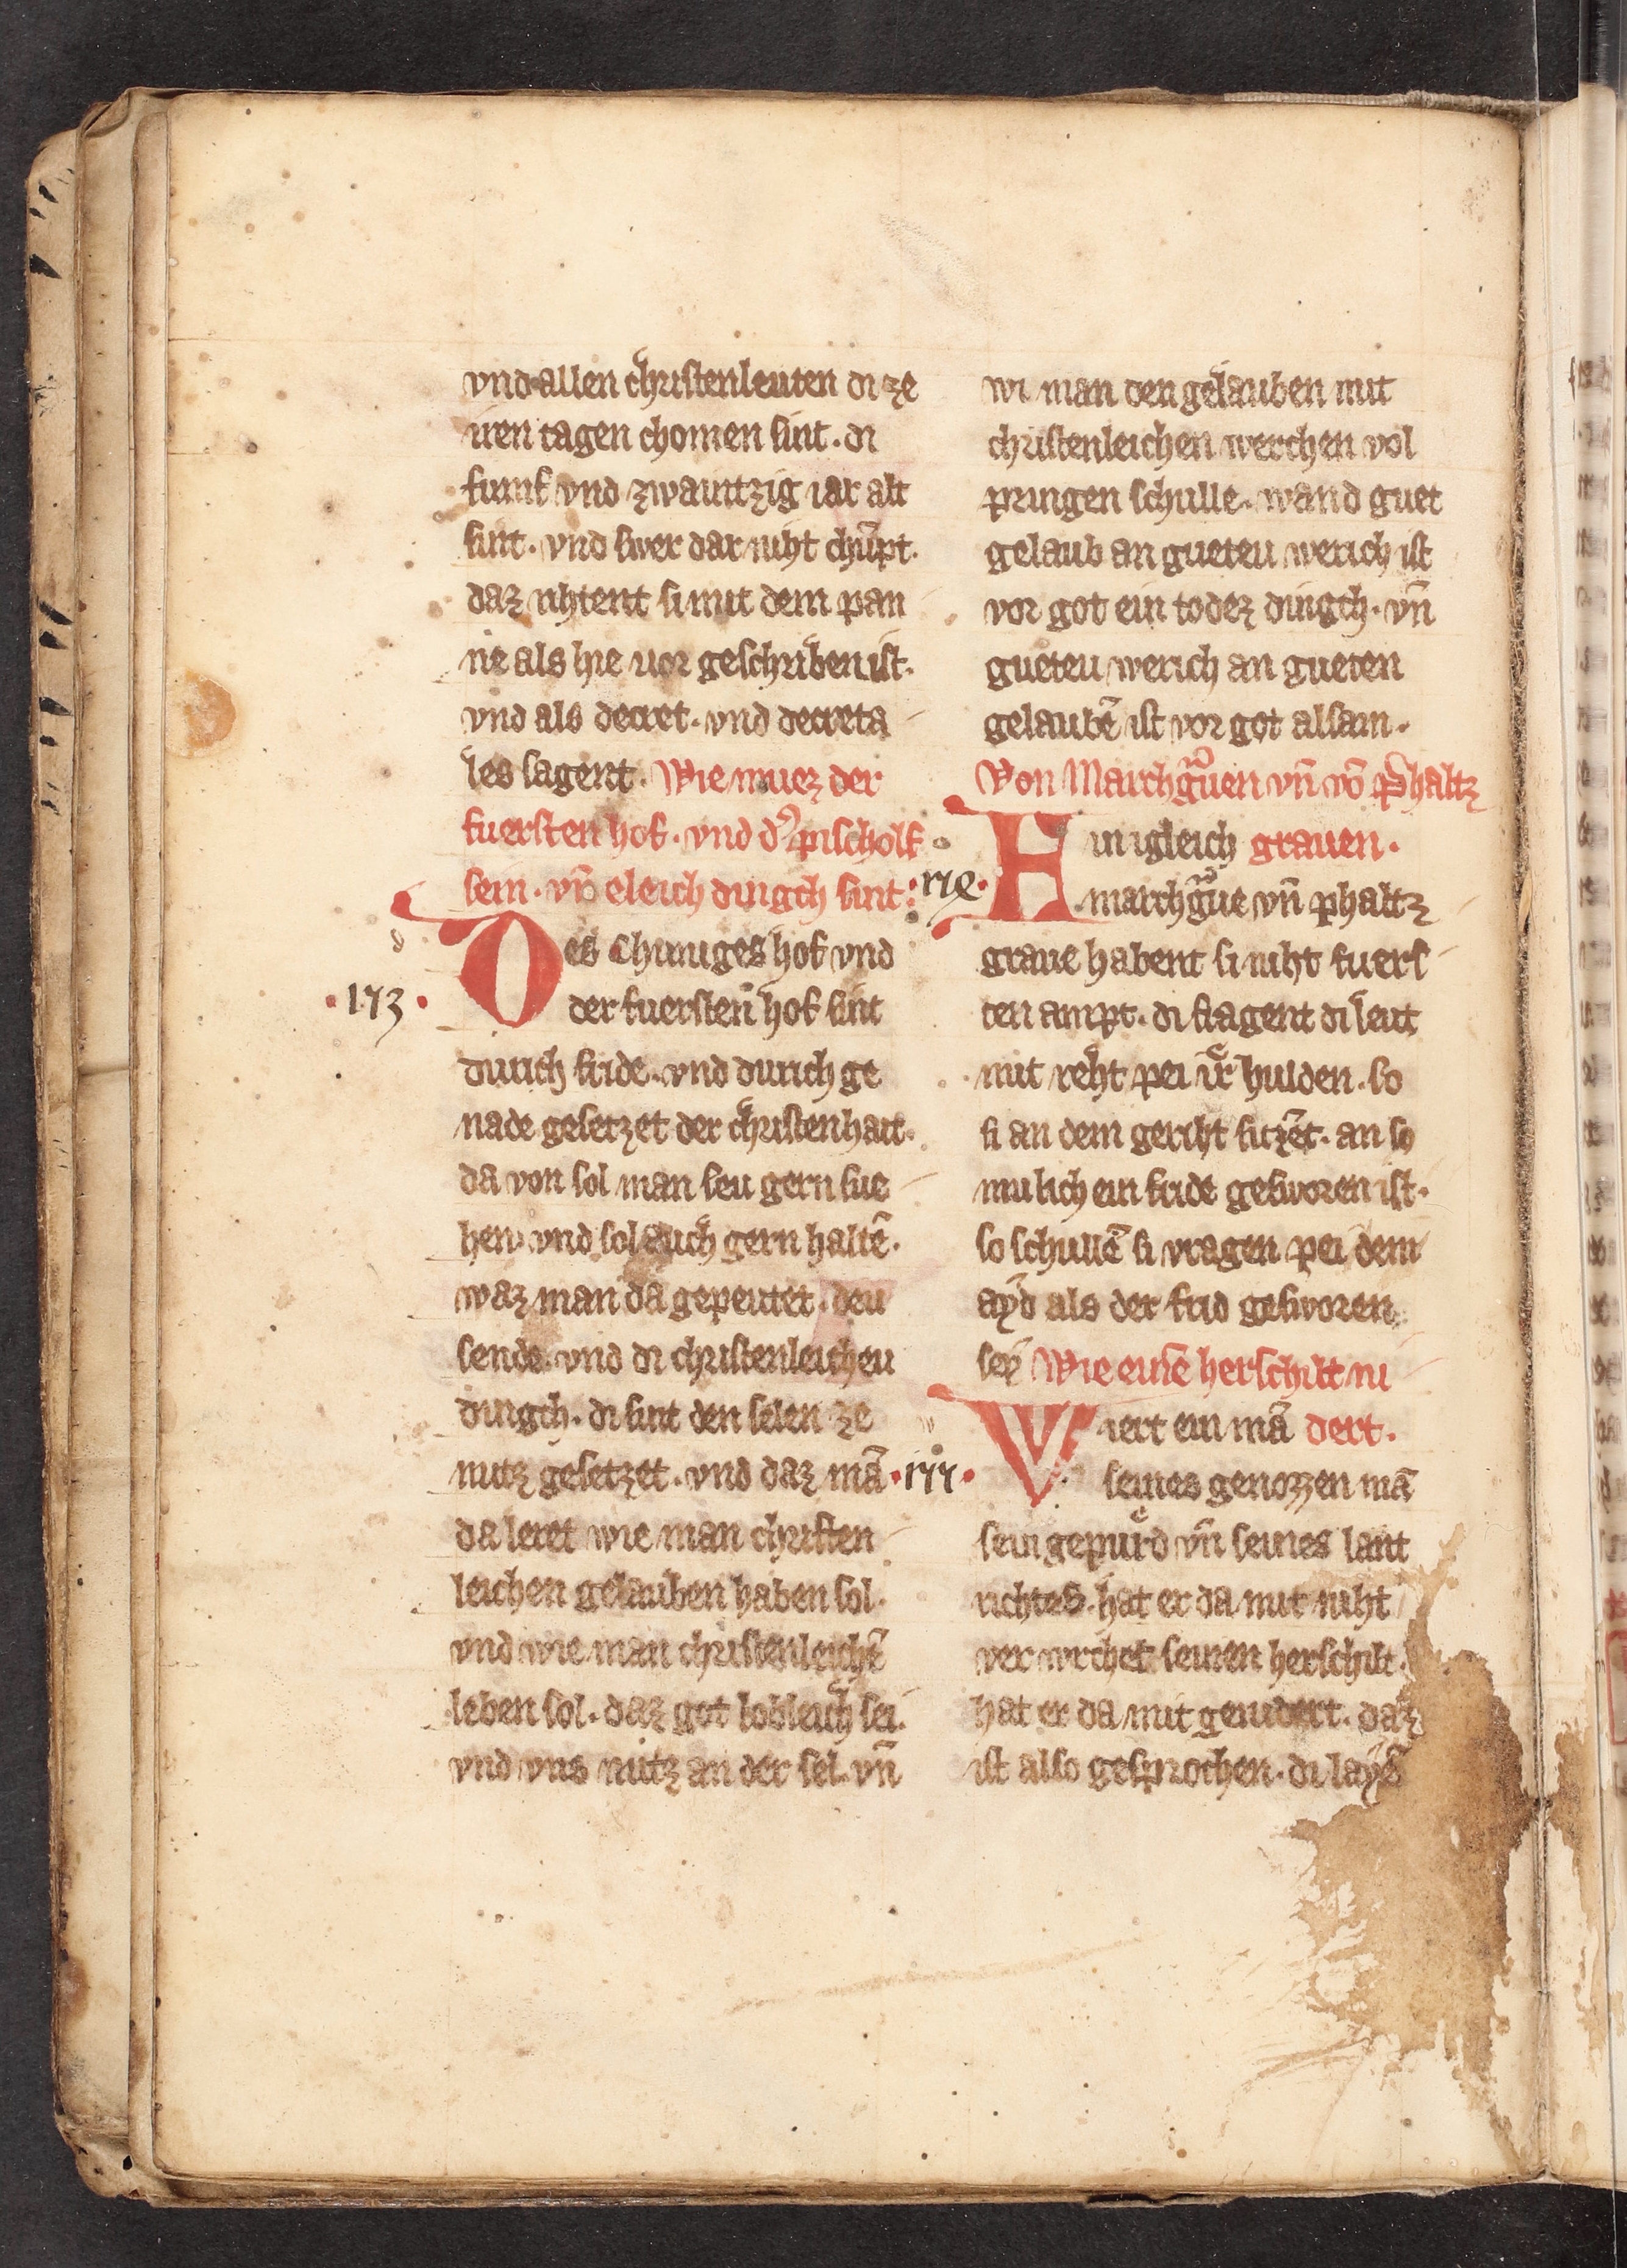 vnd allen christenleuten di ze
iren tagen chomen sint. di
fumf vnd zwaintzig iar alt
sint. vnd swer dar niht chu̅pt.
daz rihtent si mit dem pan
ne als hie uor geschriben ist.
vnd als decret. vnd decreta
les sagent. Wie nuez der
fuersten hof. vnd d' pischolf
sein. vn̄ eleich dingch sint.
Des Chuniges hof vnd
.173.
der fuersten hof sint
durich fride. vnd durich ge
nade gesetzet der christenhait.
da von sol man seu gern sue
hen. vnd sol auch gern haltē.
waz man da gepeutet. deu
sende. vnd di christenleicheu
dingch. di sint den selen ze
nutz gesetzet. vnd daz mā
da leret wie man christen
leichen gelauben haben sol.
vnd wie man christenleichē
leben sol. daz got lobleich sei.
vnd vns nutz an der sel. vn̄
wi man den gelauben mit
christenleichen werchen vol
pringen schulle. wand guet
gelaub an gueteu werich ist
vor got ein todez dingch. vn̄
gueteu werich an gueten
gelaubē ist vor got alsam.
Von Marchgͣuen vn̄ vō Phaltz
Ein igleich grauen.
marchgͣue vn̄ phaltz
graue habent si niht fuers
ten ampt. di fragent di leut
mit reht pei ir hulden. so
si an dem geriht sitzēt. an so
mulich ein fride gesworen ist.
so schullē si vragen pei dem
ayd als der frid gesworen
sey Wie eine herschilt ni
Wiert ein mā dert.
.174.
seines genozzen mā
sein gepurd vn̄ seines lant
richtes. hat er da mit niht
ver wrchet seinen herschilt.
hat er da mit genidert. daz
ist also gesprochen. di layē